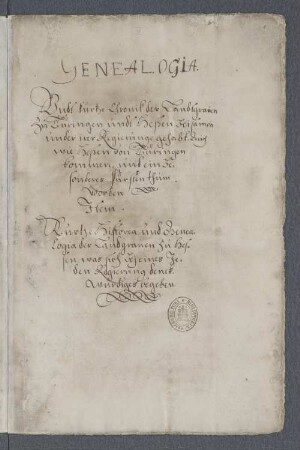 GENEALOGIA.
Undt kurtze Chronik der Landgraven
zu Türingen undt Hessen
unter irer Regierung gehabt, und
wie Hessen von Türingen
kommen, und ein be-
sonderer Fürstenthum
worden
Item
Kurtze Historia und Genea
logia der Landgraven zu Hes-
sen, was sich
den Regierung denck
würdiges begeben